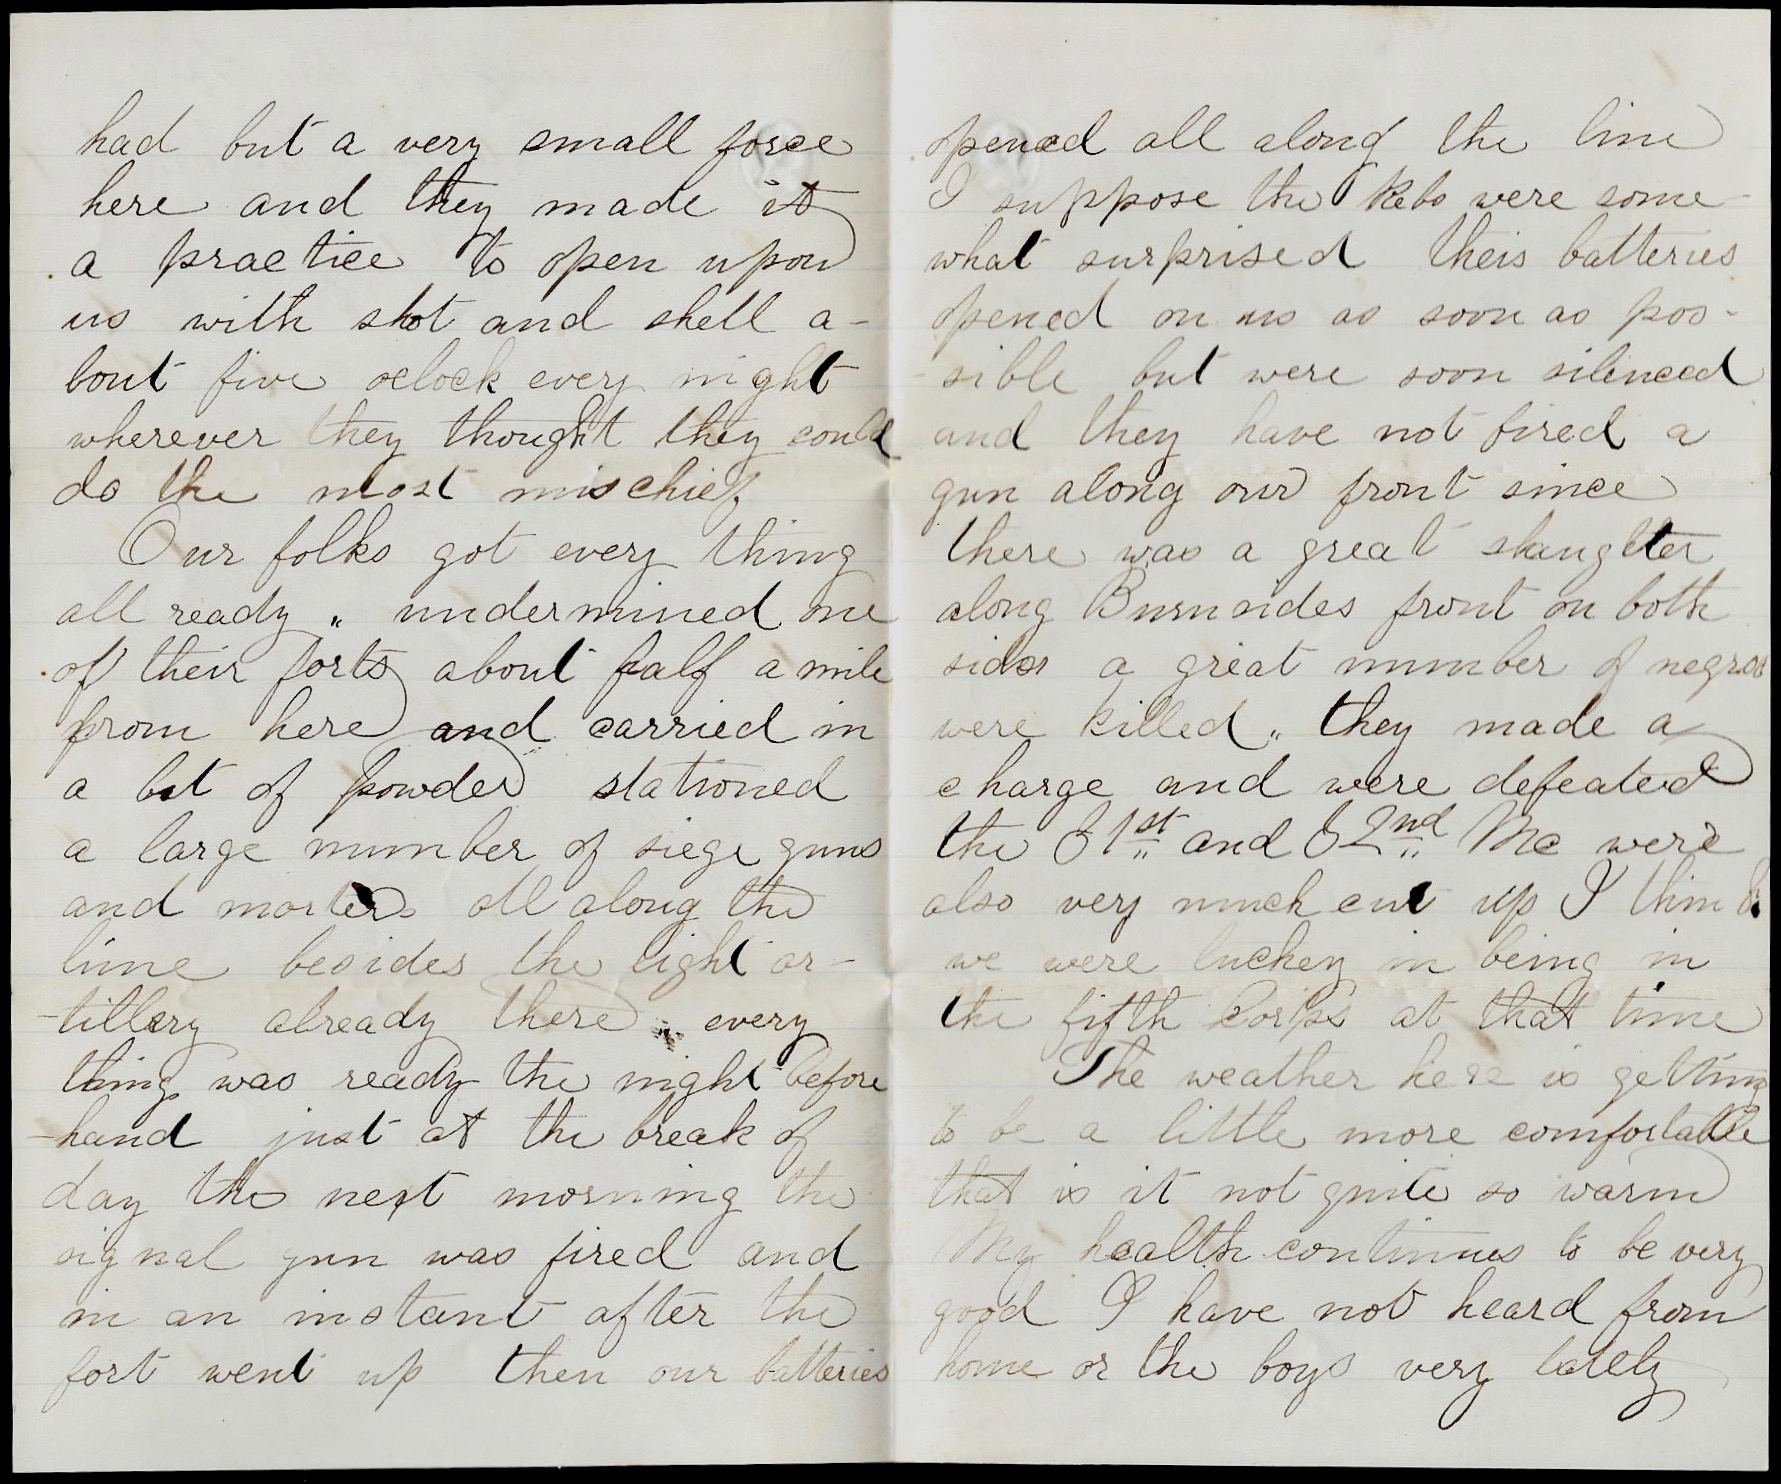 had but a very small force
here and they made it
a practice to open upon
us with shot and shell a-
bout five oclock every night
wherever they thought they could
do the most mischief
Our folks got every thing
all ready „ undermined one
of their forts about half a mile
from here and carried in
a lot of powder stationed
a large number of siege guns
and morters all along the
line besides the light ar-
-tillery already there „ every
thing was ready the night before
-hand just at the break of
day the next morning the
signal gun was fired and
in an instant after the
fort went up then our batteries
opened all along the line
I suppose the Rebs were some-
what surprised theis batteries
opened on us as soon as pos-
-sible but were soon silenced
and they have not fired a
gun along our front since
there was a great slaughter
along Burnsides front on both
sides a great number of negros
were killed „ they made a
charge and were defeated
the 31st and 32nd Me were
also very much cut up I think
we were luckey in being in
the fifth Corps at that time
The weather here is getting
to be a little more comfortable
that is it not quite so warm
My health continues to be very
good I have not heard from
home or the boys very lately